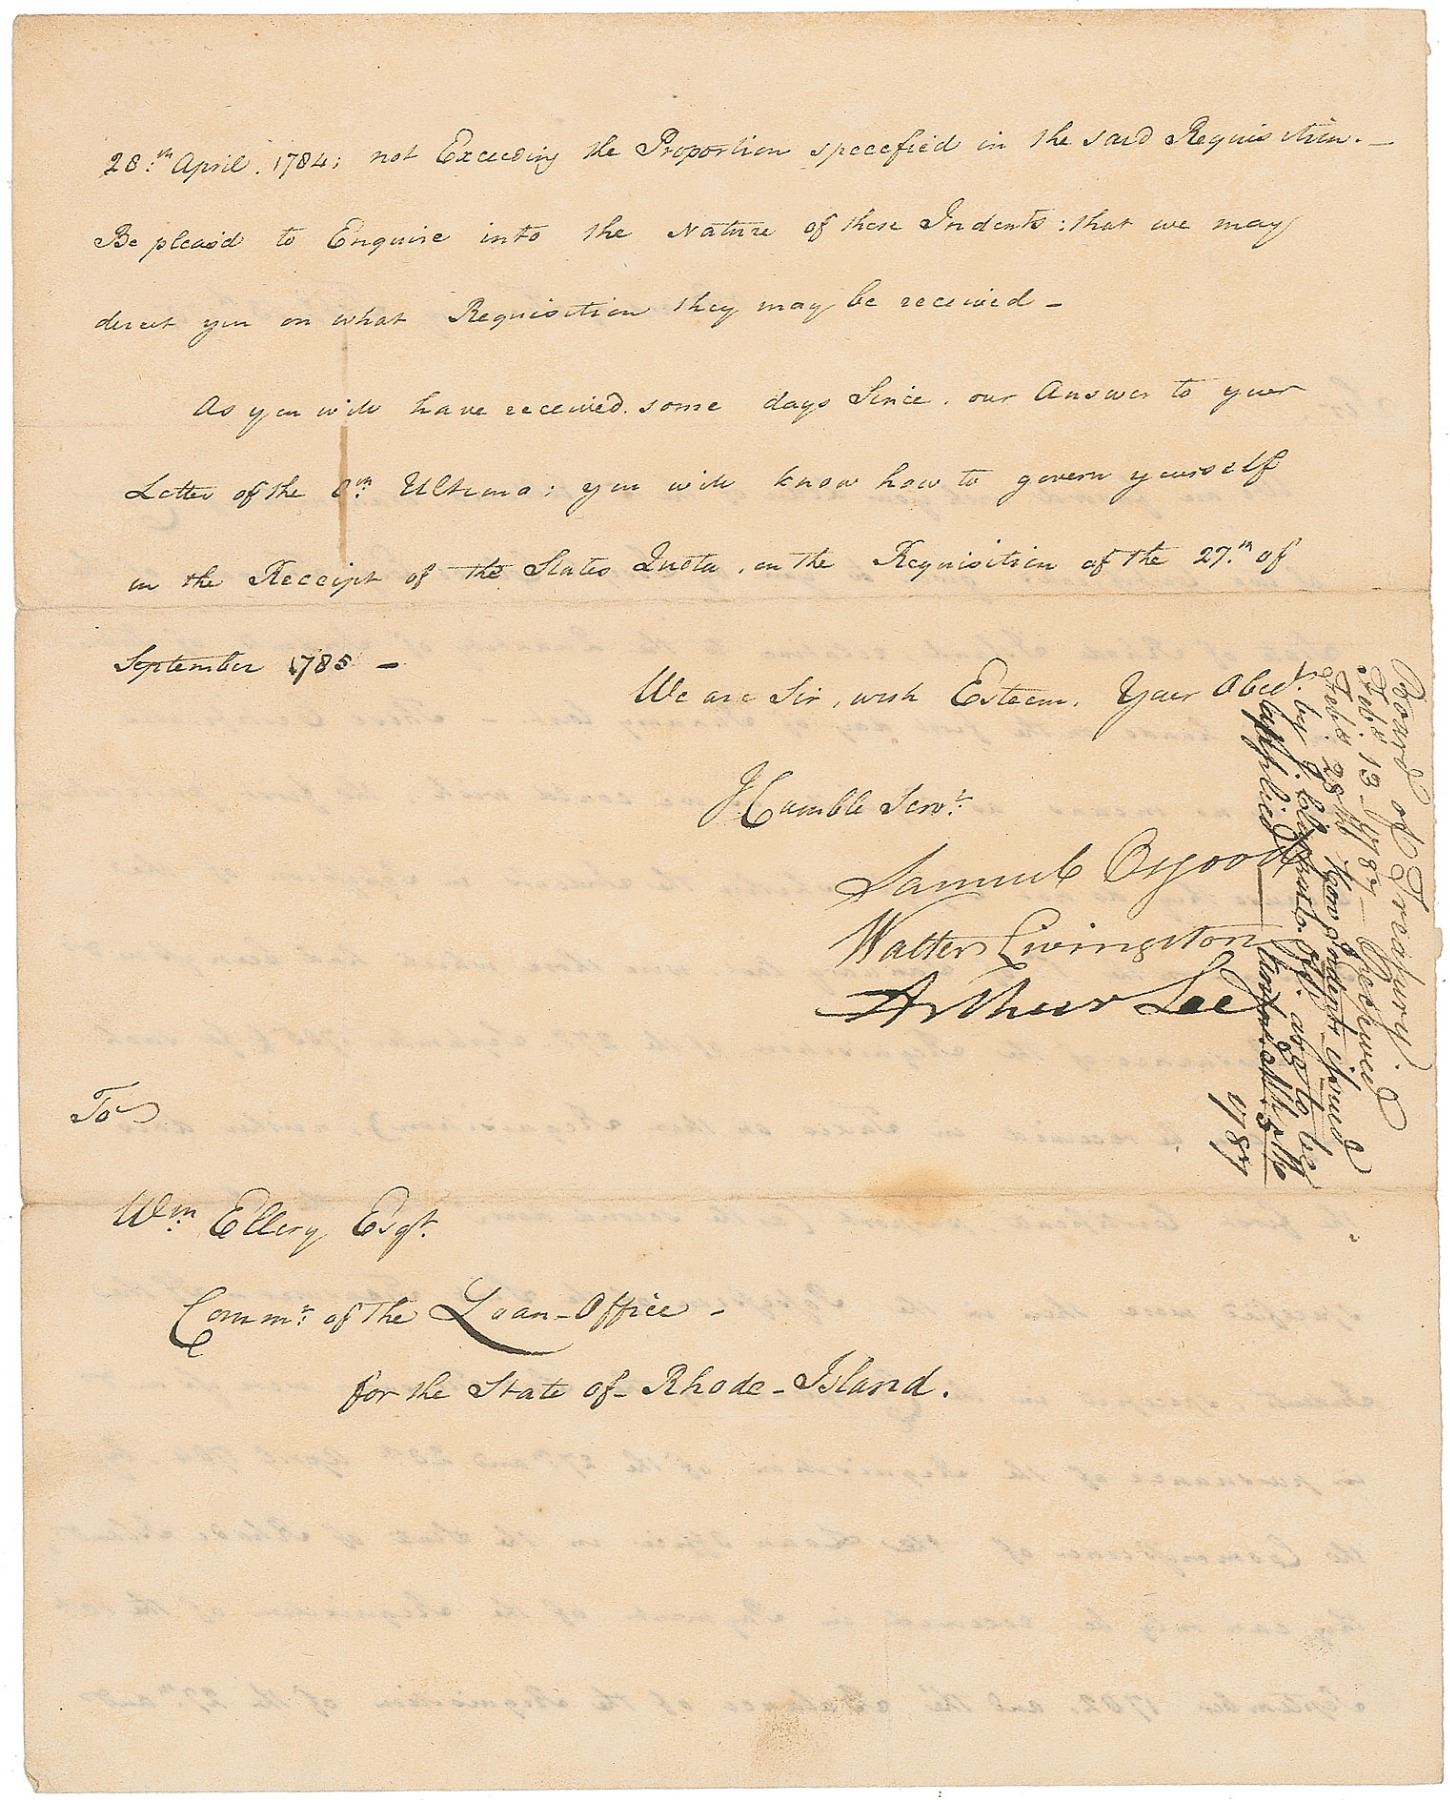 28.th April. 1784; not Exceeding the Proportion specefied in the said Requisition. —
Be pleas'd to Enquire into the Nature of these Indents: that we may
direct you on what Requisition they may be received —
As you will have received. some days Since. our Answer to your
Letter of the 8th. Ultimo: you will know how to govern yourself
in the Receipt of the States Quota, on the Requisition of the 27.th of
September 1785 —
We are Sir, with Esteem. Your Obedt.
Humble Servt.
Samuel Osgood
Walter Livingston
Arthur Lee
To
Wm. Ellery Esqr.
Commr. of the Loan-Office -
for the State of - Rhode - Island.
Board of Treasury
Feby. 13 - 1787 - Received
Feby. 28th How Indents issued
by J. Clark are to be
applied
1787